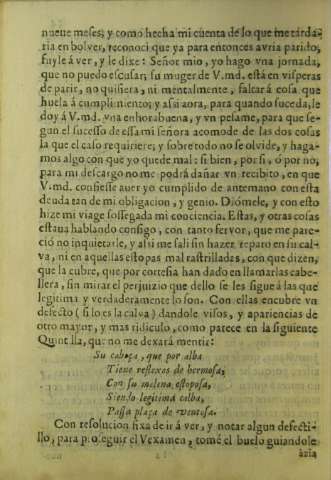 nueue meses; y como hecha mi cuenta de lo que me tarda-
ria en bolver, reconoci que ya para entonces avria parido,
fuyle á ver, y le dixe: Señor mio, yo hago vna jornada,
que no puedo escusar; su muger de V.md. está en visperas
de parir, no quisiera, ni mentalmente, faltará cosa que
huela á cumplimiento; y assi aora, para quando suceda, le
doy á V.md. vna enhorabuena, y vn pesame, para que se-
gun el sucesso de essa mi señora acomode de las dos cosas
la que el caso requiriere; y sobre todo no se olvide, y haga-
mos algo con que yo quede mal: si bien, por si, ó por no,
para mi descargo no me podrá dañar vn recibito, en que
V.md. confiesse auer yo cumplido de antemano con esta
deuda tan de mi obligacion, y genio. Diómele, y con esto
hize mi viage sossegada mi conciencia. Estas, y otras cosas
estaua hablando consigo, con tanto fervor, que me pare-
ció no inquietarle, y assi me sali sin hazer reparo en su cal-
va, ni en aquellas estopas mal rastrilladas, con que dizen,
que la cubre, que por cortesia han dado en llamarlas cabe-
llera, sin mirar el perjuizio que dello se les sigue á las que
legitima y verdaderamente lo son. Con ellas encubre vn
defecto (si lo es la calva) dandole visos, y apariencias de
otro mayor, y mas ridiculo, como parece en la siguiente
Quintilla, que no me dexará mentir:
Su cabeça, que por alba
Tiene reflexos de hermosa,
Con su melena estoposa,
Siendo legitima calba,
Passa plaça de ventosa.
Con resolucion fixa de ir á ver, y notar algun defecti-
llo, para proseguir el Vexamen, tomé el buelo guiandole
ázia